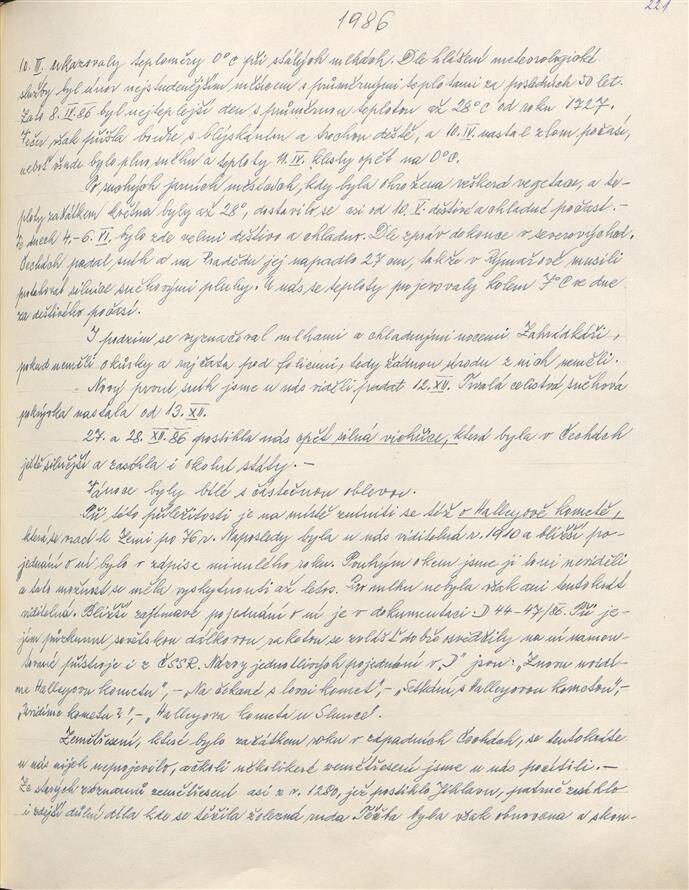 221
1986
10. II. ukazovaly teploměry 0°C při stálých mlhách. Dle hlášení meteorologické
služby byl únor nejstudenějším měsícem s průměrnými teplotami za posledních 50 let.
Zato 8. IV. 86 byl nejteplejší den s průměrnou teplotou až 28°C od roku 1727.
Večer však přišla bouře s blýskáním a trochou deště, a 10. IV. nastal zlom počasí,
neboť všude bylo plno sněhu a teploty 11. IV. klesly opět na 0°C.
Po suchých jarních měsících, kdy byla ohrožena veškerá vegetace, a te-
ploty začátkem května byly až 28°, dostavilo se asi od 10. V. deštivé a chladné počasí. –
Ve dnech 4.–6. VI. bylo zde velmi deštivo a chladno. Dle zpráv dokonce v severovýchod.
Čechách padal sníh a na Pradědu jej napadlo 27 cm, takže v Rýmařově museli
protahovat silnice sněhovými pluhy. U nás se teploty projevovaly kolem 7°C ve dne
za deštivého počasí.
I podzim se vyznačoval mlhami a chladnými nocemi. Zahrádkáři,
pokud neměli okurky a rajčata pod foliemi, tedy žádnou úrodu z nich neměli. –
Nový první sníh jsme u nás viděli padat 12. XII. Trvalá celistvá sněhová
pokrývka nastala od 13. XII.
27. a 28. XII. 86 postihla nás opět silná vichřice, která byla v Čechách
ještě silnější a zasáhla i okolní státy. –
Vánoce byly bílé s částečnou oblevou.
Při této příležitosti je na místě zmíniti se též o Halleyově kometě,
která se vrací k Zemi po 76 r. Naposledy byla u nás viditelná r. 1910 a bližší po-
jednání o ní bylo v zápise minulého roku. Pouhým okem jsme ji loni neviděli
a tato možnost se měla vyskytnouti až letos. Pro mlhu nebyla však ani tentokrát
viditelná. Bližší zajímavé pojednání o ní je v dokumentaci: D 44–47/86. Při je-
jím průzkumu sovětskou dálkovou raketou se zvlášť dobře osvědčily na ní namon-
tované přístroje i z ČSSR. Názvy jednotlivých pojednání v „D" jsou: „Znovu uvidí-
me Halleyovu kometu", – „Na čekané s lovci komet", – „Setkání s Halleyovou kometou", –
„Uvidíme kometu?!", – „Halleyova kometa u Slunce".
Zemětřesení, které bylo začátkem roku v západních Čechách, se tentokráte
u nás nijak neprojevilo, ačkoli několikeré zemětřesení jsme u nás pocítili. –
Ze starých záznamů zemětřesení asi z r. 1280, jež postihlo Jihlavu, patrně zasáhlo
i zdejší důlní díla kde se těžila železná ruda. Těžba byla však obnovena a skon-